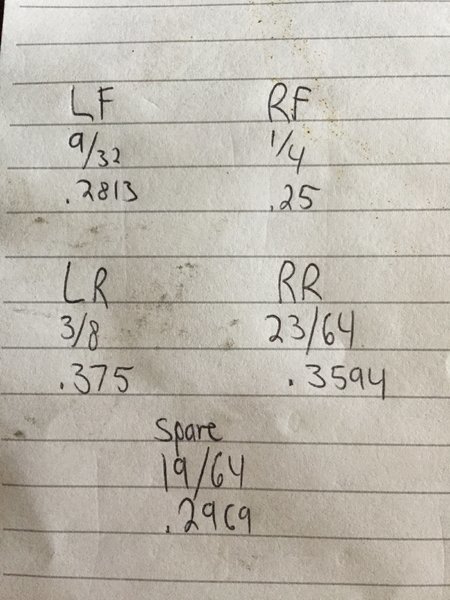 LF RF
9/32 1/4
.2813 .25
LR RR
3/8 23/64
.375 .3594
Spare
19/64
.2969